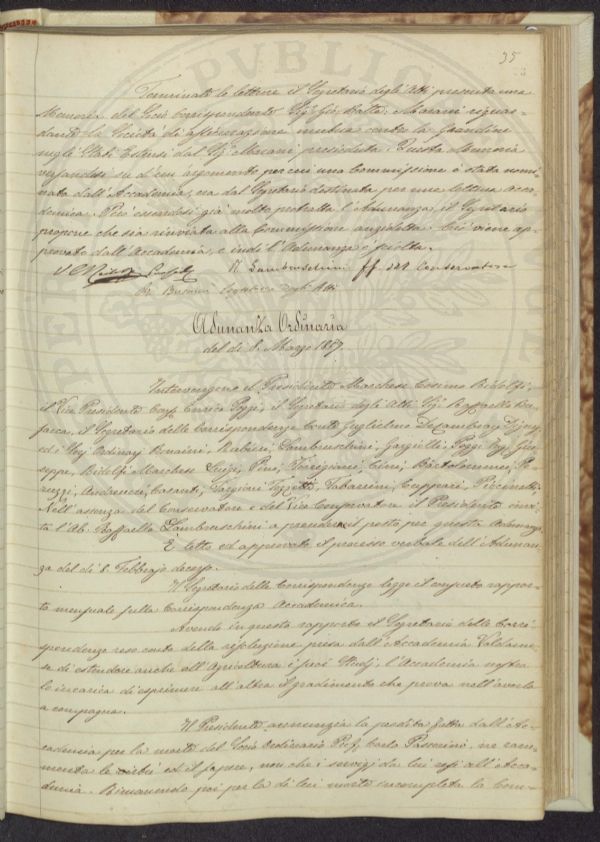 35
Terminate le letture il Segretario degli Atti presenta una
Memoria del Socio Corrispondente Sig. Gio. Batta. Macani riguar-
dante la Società di assicurazione mutua contro la Grandine
negli Stati Estensi dal Sig. Macani presieduta. Questa Memoria
su di un argomento per cui una Commissione è stata nomi-
nata dall'Accademia, era dal Segretario destinata per una lettura acca-
demica. Però essendosi già molto protratta l'Adunanza, il Segretario
propone che sia rinviata alla Commissione anzidetta. Ciò viene ap-
provato dall'Accademia, e indi l'Adunanza è sciolta.
R. Lambruschini ff. del Conservatore
Segretario degli Atti
Adunanza Ordinaria
del dì 1. Marzo 1857
Intervengono il Presidente Marchese Cosimo Ridolfi,
il Vice Presidente Cav. Enrico Poggi, il Segretario degli Atti Sig. Raffaello Bu-
sacca, il Segretario delle Corrispondenze Conte Guglielmo De Cambray Digny
ed i Sigg. Ordinarj Bonaini, Rubieri, Lambruschini, Gargiolli, Poggi Giu-
seppe, Ridolfi Marchese Luigi, Torrigiani, Cini, Bartolommei, Pe-
ruzzi, Andreucci, Casanti, Targioni Tozzetti, Tabarrini, Cuppari,
Nell'assenza del Conservatore e del Vice Conservatore il Presidente invi-
ta l'Ab. Raffaello Lambruschini a prendere il posto per questa Adunanza.
È letto ed approvato il processo verbale dell'Adunan-
za del dì 1. Febbrajo decorso.
Il Segretario delle Corrispondenze legge il consueto rappor-
to mensuale sulla Corrispondenza Accademica.
Avendo in questo rapporto il Segretario delle Corri-
spondenze reso conto della risoluzione presa dall'Accademia Valdarne-
se di estendere anche all'Agricoltura i suoi studj, l'Accademia nostra
lo incarica di esprimere all'altra il gradimento che prova nell'averla
a compagna.
Il Presidente annunzia la perdita fatta dall'Ac-
cademia per la morte del Socio Ordinario Prof. Carlo Passerini, ne ram-
menta le virtù ed il sapere, non che i servizj da lui resi all'Acca-
demia. Rimanendo poi per la di lui morte incompleta la Com-